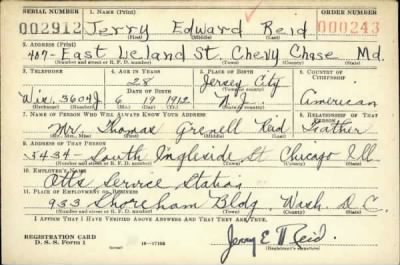 SERIAL NUMBER 1. NAME (Print) ORDER NUMBER
002912 Jerry Edward Reid 000243
(First) (Middle) (Last)
2. ADDRESS (Print)
407- East Leland St. Chevy Chase Md.
(Number and street or R. F. D. number) (Town) (County) (State)
3. TELEPHONE 4. AGE IN YEARS 5. PLACE OF BIRTH 6. COUNTRY OF CITIZENSHIP
28 Jersey City
DATE OF BIRTH (Town or county)
Wis. 3604J 6 19 1912 N.J. American
(Exchange) (Number) (Mo.) (Day) (Yr.) (State or country)
7. NAME OF PERSON WHO WILL ALWAYS KNOW YOUR ADDRESS 8. RELATIONSHIP OF THAT PERSON
Mr. Thomas Grenell Reid Father
(Mr., Mrs., Miss) (First) (Middle) (Last)
9. ADDRESS OF THAT PERSON
5434- South Ingleside St Chicago Ill.
(Number and street or R. F. D. number) (Town) (County) (State)
10. EMPLOYER'S NAME
Otts Service Station
11. PLACE OF EMPLOYMENT OR BUSINESS
933 Shoreham Bldg. Wash. D.C.
(Number and street or R. F. D. number) (Town) (County) (State)
I AFFIRM THAT I HAVE VERIFIED ABOVE ANSWERS AND THAT THEY ARE TRUE.
REGISTRATION CARD
D. S. S. Form 1 16-17105 Jerry E Reid